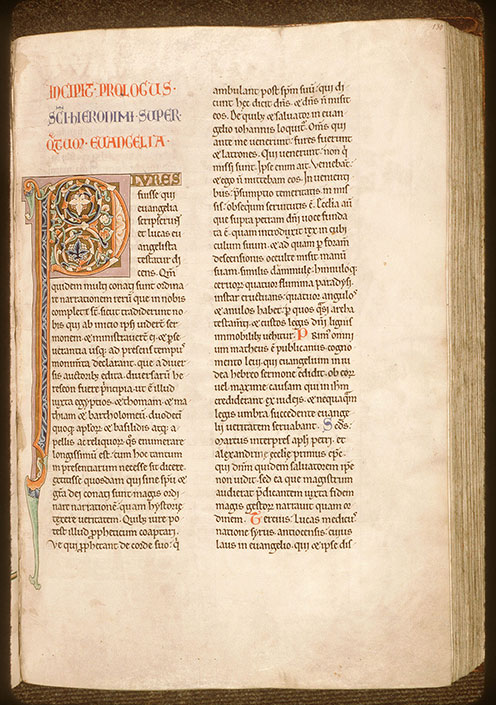 INCIPIT · PROLOGUS ·
SCI · HIERONIMI · SUPER ·
QTUOR · EUANGELIA ·
PLURES
fuisse qui
euangelia
scripserunt
et lucas eu
angelista
testatur di
cens. Qm̄
quidem multi conati sunt ordina
re narrationem rerū que in nobis
complete sṫ. sicut tradiderunt no
bis qui ab inicio ipsi uider̄t ser
monem et ministrauer̄t ei. et p̄se
uerantia usq; ad presens temp᷒
monim̄ta declarant. que a diuer
sis auctorib; edita. diuersarū he
reseon fuere p̄ncipia. ut ē illud
iuxta egyptios. et thomam. et ma
thiam et bartholomeū. duodeci
quoq; aplor᷒ et basilidis atq; a
pellis. ac reliquor᷒ q̄s enumerare
longissimū est. cum hoc tantum
in presentiarum necesse sit dicere.
extitisse quosdam qui sine spū et
gr̄a dei conati sunt magis ordi
nare narrationē. quam hystorię
texere ueritatem. Quib; iure po
test illud ꝓpheticum coaptari.
Ve qui ꝓphetant de corde suo. q̇
ambulant post spm̄ suū. qui di
cunt hec dicit dn̄s. et dn̄s n̄ misit
eos. De quib; et saluator in euan
gelio iohannis loquit᷒. Om̄s qui
ante me uenerunt. fures fuerunt
et latrones. Qui uenerunt. non q̇
missi sunt. Ipse enim ait. Veniebāt
et ego n̄ mittebam eos. In uenienti
bus. p̄sumptio temeritatis. in mis
sis. obsequium seruitutis ē. Eccl̄ia aū
que supra petram dn̄i uoce funda
ta ē. quam introduxit rex in cubi
culum suum. et ad quam p̱ foram̄
descensionis occulte misit manū
suam. similis dammule hinnuloq;
ceruor᷒. quatuor flumina paradysi
instar eructuans. quatuor angulos
et anulos habet. p̱ quos q̄si archa
testam̄ti. et custos legis dn̄i lignis
immobilib; uehitur. Primus omniū
matheus ē publicanus. cognom̄
mento leui. qui euangelium in iu
dea hebreo sermone edidit. ob eor᷒
uel maxime causam qui in ihm̄
crediderant ex iudeis. et nequaq̄m
legis umbra succedente euange
lii ueritatem seruabant. Scds.
marcus interpres apl̄i petri. et
alexandrine ecclie primus eps̄.
qui dn̄m quidem saluatorem ip̄e
non uidit. sed ea que magistrum
audierat p̄dicantem iuxta fidem
magis gestor᷒ narrauit quam or
dinem. Tercius. lucas medicus
natione syrus antiocensis. cuius
laus in euangelio. qui et ipse dis